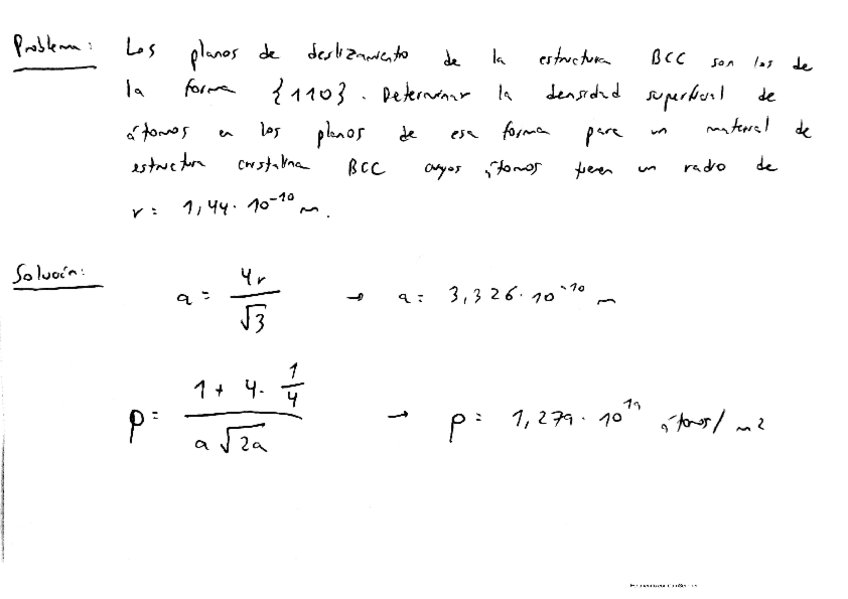 Problema: Los planos de deslizamiento de la estructura BCC son los de
la forma {110}. Determinar la densidad superficial de
átomos en los planos de esa forma para un material de
estructura cristalina BCC cuyos átomos tienen un radio de
r = 1,44·10⁻¹⁰ m.
Solución:
a = 4r/√3 → a = 3,326·10⁻¹⁰ m
ρ = (1 + 4·1/4)/(a√2a) → ρ = 1,279·10¹⁹ átomos/m²